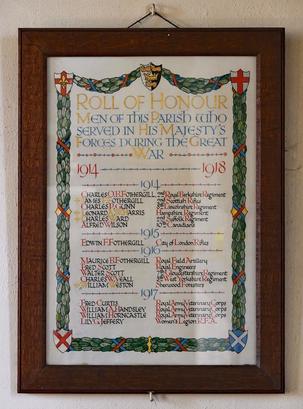 ROLL OF HONOUR
MEN OF THIS PARISH WHO
SERVED IN HIS MAJESTY'S
FORCES DURING THE GREAT
WAR
1914 1918
1914
CHARLES O.R. FOTHERGILL Royal Berkshire Regiment
JAMES FOTHERGILL Scottish Rifles
CHARLES P. GUNN Lincolnshire Regiment
LEONARD HARRIS Hampshire Regiment
CHARLES WARD Suffolk Regiment
ALFRED WILSON Canadians
1915
EDWIN E. FOTHERGILL City of London Rifles
1916
MAURICE B.F. FOTHERGILL Royal Field Artillery
FRED SCOTT Royal Engineers
WALTER SCOTT Gloucestershire Regiment
CHARLES W. Royal Sussex Regiment
WILLIAM WESTON Sherwood Foresters
1917
FRED CURTIS Royal Army Veterinary Corps
WILLIAM A. HANDSLEY Royal Army Veterinary Corps
WILLIAM HORNCASTLE Royal Army Veterinary Corps
LILY G. JEFFERY Women's Legion R.F.A.